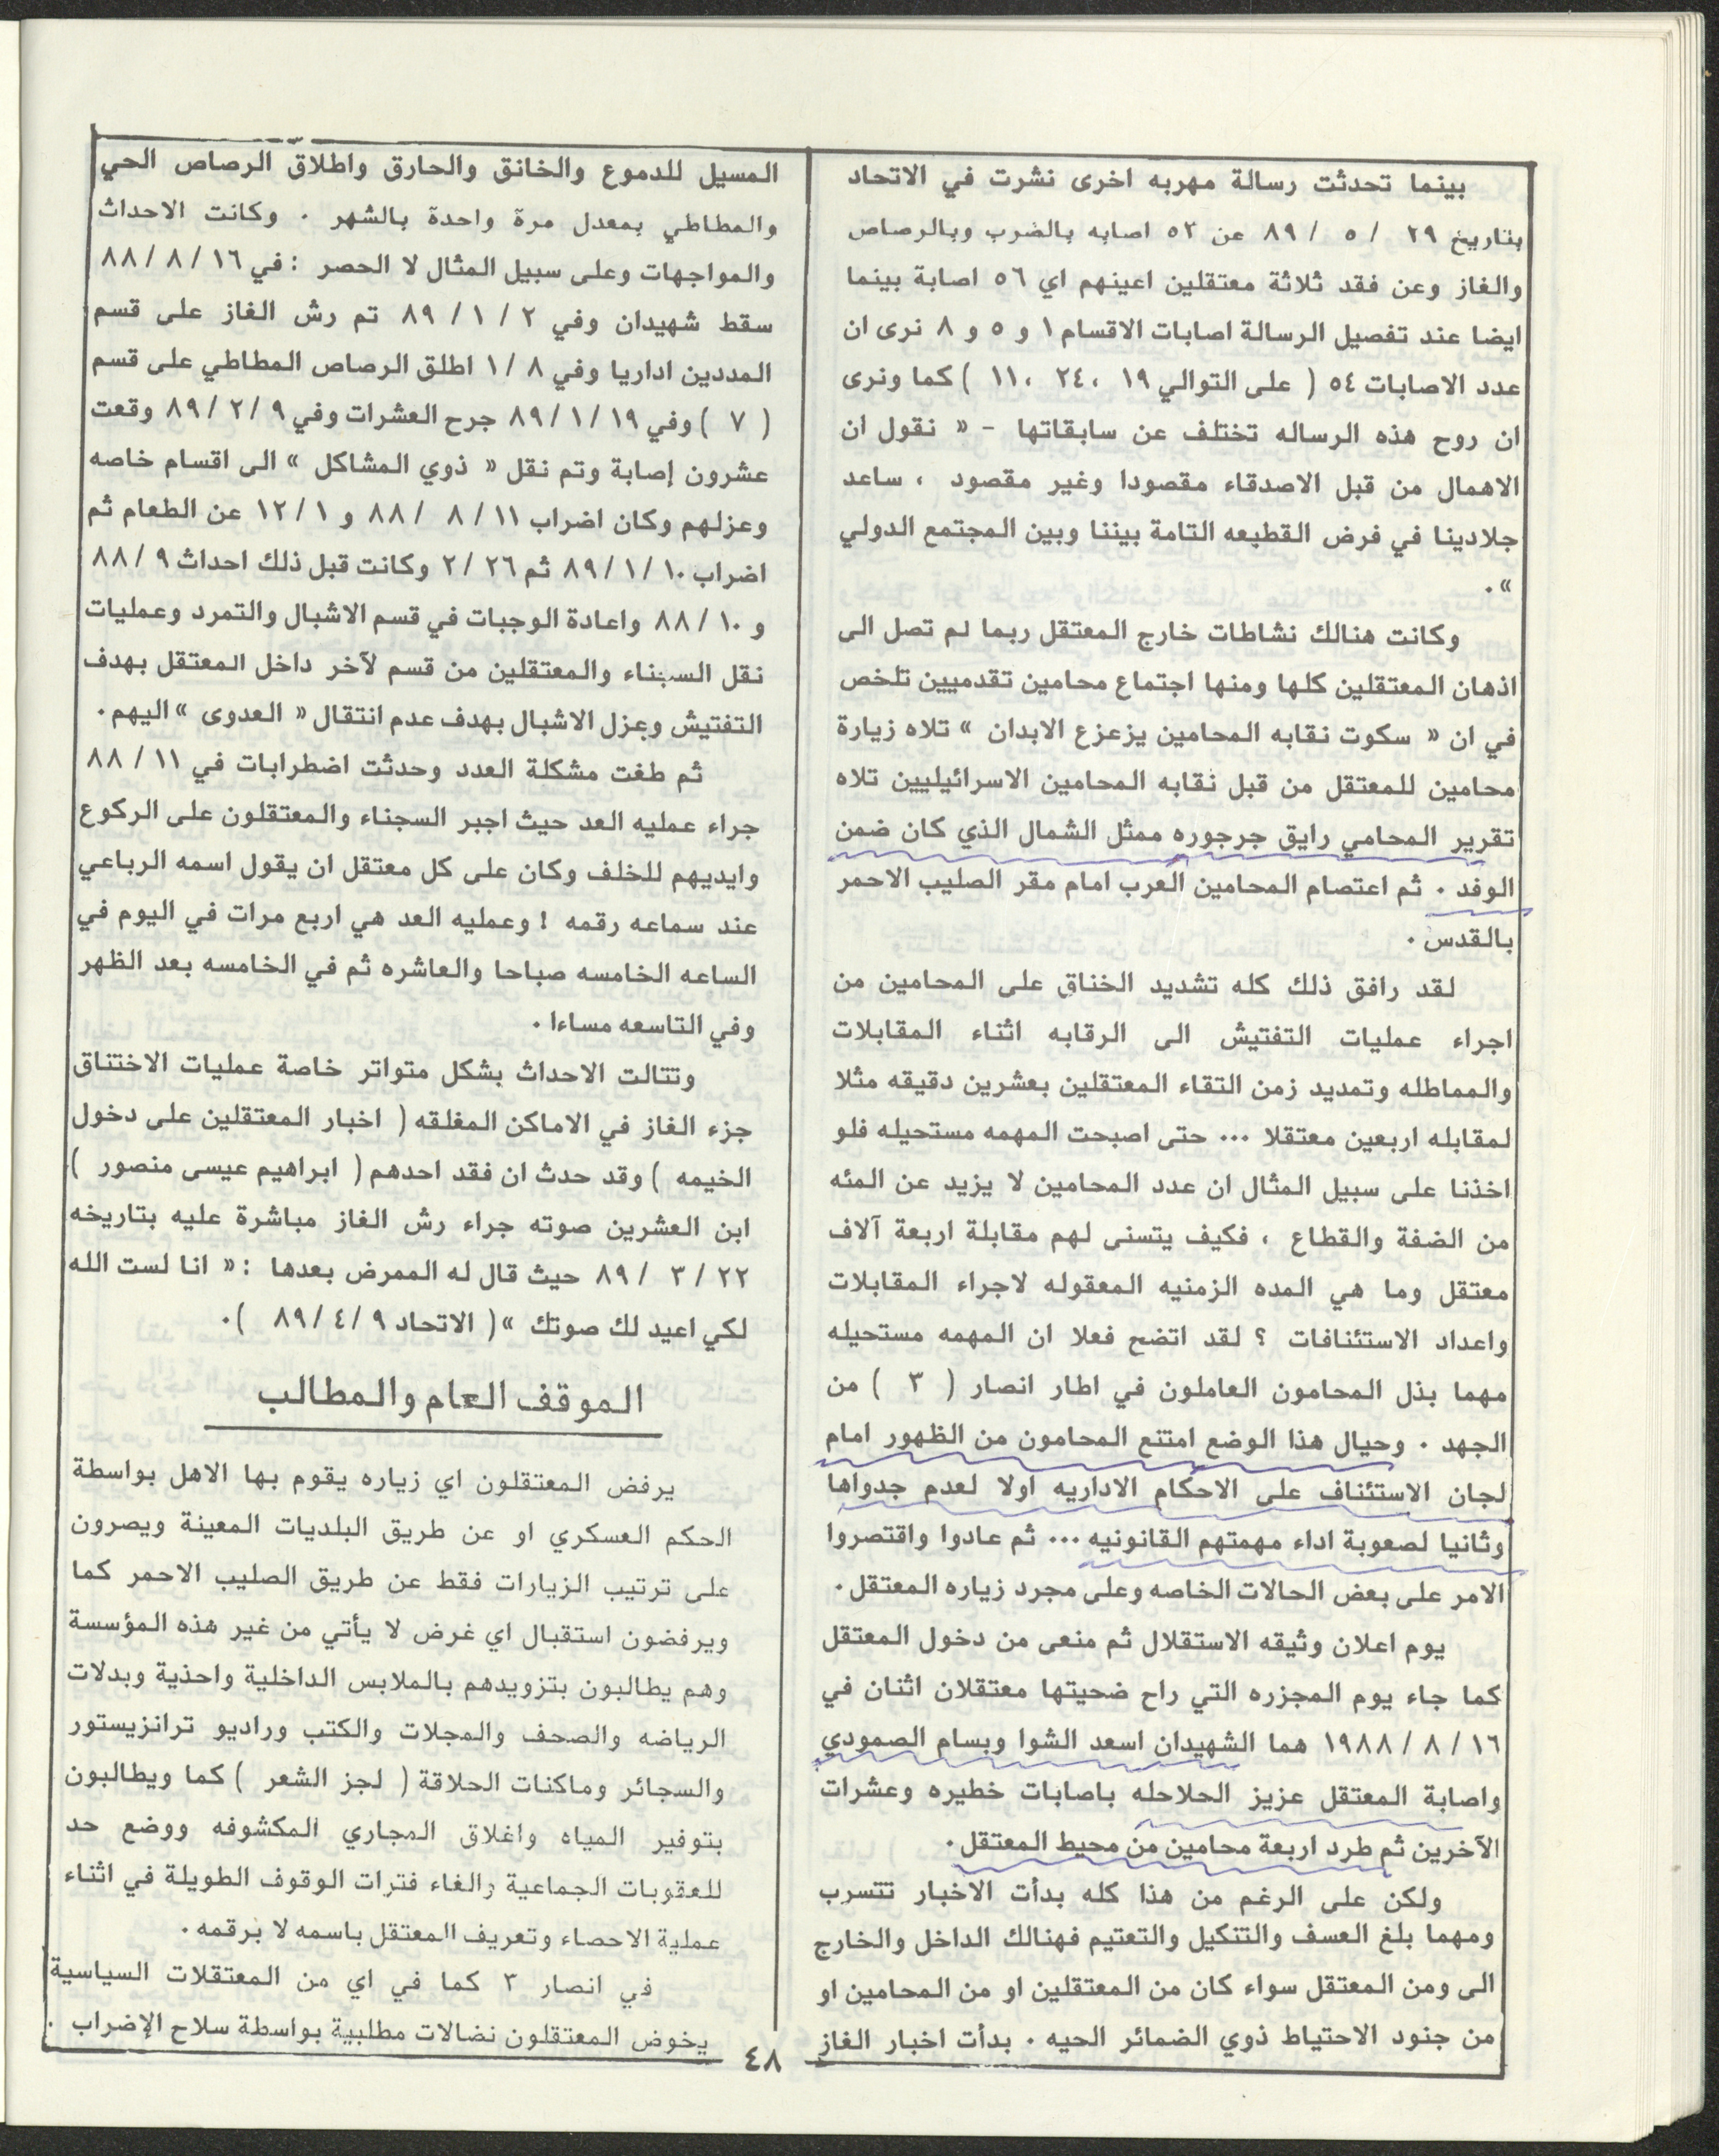 بينما تحدثت رسالة مهربه اخرى نشرت في الاتحاد
بتاريخ ٢٩ / ٥ / ٨٩ عن ٥٣ اصابه بالضرب وبالرصاص
والغاز وعن فقد ثلاثة معتقلين اعينهم اي ٥٦ اصابة بينما
ايضا عند تفصيل الرسالة اصابات الاقسام ١ و ٥ و ٨ نرى ان
عدد الاصابات ٥٤ ( على التوالي ١٩ ، ٢٤ ، ١١ ) كما ونرى
ان روح هذه الرساله تختلف عن سابقاتها - « نقول ان
الاهمال من قبل الاصدقاء مقصودا وغير مقصود ، ساعد
جلادينا في فرض القطيعه التامة بيننا وبين المجتمع الدولي
» .
وكانت هنالك نشاطات خارج المعتقل ربما لم تصل الى
اذهان المعتقلين كلها ومنها اجتماع محامين تقدميين تلخص
في ان « سكوت نقابه المحامين يزعزع الابدان » تلاه زيارة
محامين للمعتقل من قبل نقابه المحامين الاسرائيليين تلاه
تقرير المحامي رايق جرجوره ممثل الشمال الذي كان ضمن
الوفد . ثم اعتصام المحامين العرب امام مقر الصليب الاحمر
بالقدس .
لقد رافق ذلك كله تشديد الخناق على المحامين من
اجراء عمليات التفتيش الى الرقابه اثناء المقابلات
والمماطله وتمديد زمن التقاء المعتقلين بعشرين دقيقه مثلا
لمقابله اربعين معتقلا ... حتى اصبحت المهمه مستحيله فلو
اخذنا على سبيل المثال ان عدد المحامين لا يزيد عن المئه
من الضفة والقطاع ، فكيف يتسنى لهم مقابلة اربعة آلاف
معتقل وما هي المده الزمنيه المعقوله لاجراء المقابلات
واعداد الاستئنافات ؟ لقد اتضح فعلا ان المهمه مستحيله
مهما بذل المحامون العاملون في اطار انصار ( ٣ ) من
الجهد . وحيال هذا الوضع امتنع المحامون من الظهور امام
لجان الاستئناف على الاحكام الاداريه اولا لعدم جدواها
وثانيا لصعوبة اداء مهمتهم القانونيه ... ثم عادوا واقتصروا
الامر على بعض الحالات الخاصه وعلى مجرد زياره المعتقل .
يوم اعلان وثيقه الاستقلال ثم منعى من دخول المعتقل
كما جاء يوم المجزره التي راح ضحيتها معتقلان اثنان في
١٦ / ٨ / ١٩٨٨ هما الشهيدان اسعد الشوا وبسام الصمودي
واصابة المعتقل عزيز الحلاحله باصابات خطيره وعشرات
الآخرين ثم طرد اربعة محامين من محيط المعتقل .
ولكن على الرغم من هذا كله بدأت الاخبار تتسرب
ومهما بلغ العسف والتنكيل والتعتيم فهنالك الداخل والخارج
الى ومن المعتقل سواء كان من المعتقلين او من المحامين او
من جنود الاحتياط ذوي الضمائر الحيه . بدأت اخبار الغاز
المسيل للدموع والخانق والحارق واطلاق الرصاص الحي
والمطاطي بمعدل مرة واحدة بالشهر . وكانت الاحداث
والمواجهات وعلى سبيل المثال لا الحصر : في ١٦ / ٨ / ٨٨
سقط شهيدان وفي ٢ / ١ / ٨٩ تم رش الغاز على قسم
المددين اداريا وفي ٨ / ١ اطلق الرصاص المطاطي على قسم
( ٧ ) وفي ١٩ / ١ / ٨٩ جرح العشرات وفي ٩ / ٢ / ٨٩ وقعت
عشرون إصابة وتم نقل « ذوي المشاكل » الى اقسام خاصه
وعزلهم وكان اضراب ١١ / ٨ / ٨٨ و ١ / ١٢ عن الطعام ثم
اضراب ١٠ / ١ / ٨٩ ثم ٢٦ / ٢ وكانت قبل ذلك احداث ٩ / ٨٨
و ١٠ / ٨٨ واعادة الوجبات في قسم الاشبال والتمرد وعمليات
نقل السجناء والمعتقلين من قسم لآخر داخل المعتقل بهدف
التفتيش وعزل الاشبال بهدف عدم انتقال « العدوى » اليهم .
ثم طغت مشكلة العدد وحدثت اضطرابات في ١١ / ٨٨
جراء عمليه العد حيث اجبر السجناء والمعتقلون على الركوع
وايديهم للخلف وكان على كل معتقل ان يقول اسمه الرباعي
عند سماعه رقمه ! وعمليه العد هي اربع مرات في اليوم في
الساعه الخامسه صباحا والعاشره ثم في الخامسه بعد الظهر
وفي التاسعه مساءا .
وتتالت الاحداث بشكل متواتر خاصة عمليات الاختناق
جزء الغاز في الاماكن المغلقه ( اخبار المعتقلين على دخول
الخيمه ) وقد حدث ان فقد احدهم ( ابراهيم عيسى منصور )
ابن العشرين صوته جراء رش الغاز مباشرة عليه بتاريخه
٢٢ / ٣ / ٨٩ حيث قال له الممرض بعدها : « انا لست الله
لكي اعيد لك صوتك » ( الاتحاد ٩ / ٤ / ٨٩ ) .
الموقف العام والمطالب
يرفض المعتقلون اي زياره يقوم بها الاهل بواسطة
الحكم العسكري او عن طريق البلديات المعينة ويصرون
على ترتيب الزيارات فقط عن طريق الصليب الاحمر كما
ويرفضون استقبال اي غرض لا يأتي من غير هذه المؤسسة
وهم يطالبون بتزويدهم بالملابس الداخلية واحذية وبدلات
الرياضه والصحف والمجلات والكتب وراديو ترانزيستور
والسجائر وماكنات الحلاقة ( لجز الشعر ) كما ويطالبون
بتوفير المياه واغلاق المجاري المكشوفه ووضع حد
للعقوبات الجماعية والغاء فترات الوقوف الطويلة في اثناء
عملية الاحصاء وتعريف المعتقل باسمه لا برقمه .
في انصار ٣ كما في اي من المعتقلات السياسية
يخوض المعتقلون نضالات مطلبية بواسطة سلاح الإضراب .
٤٨